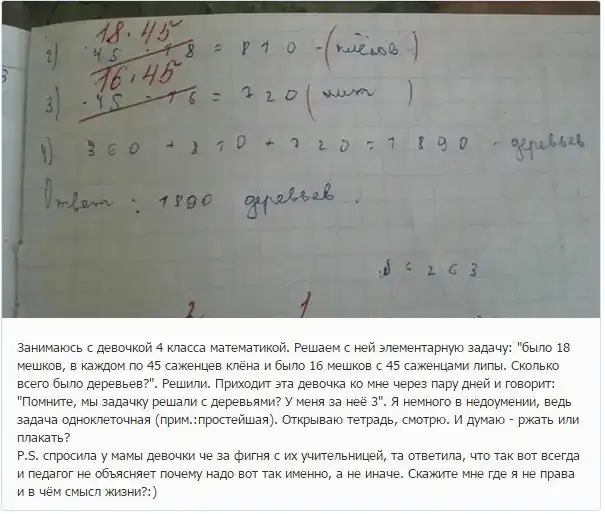 18 · 45
2) 45 · 18 = 810 - (клёнов)
16 · 45
3) 45 · 16 = 720 (лип)
4) 360 + 810 + 720 = 1890 - деревьев
Ответ: 1890 деревьев.
= 263
Занимаюсь с девочкой 4 класса математикой. Решаем с ней элементарную задачу: "было 18
мешков, в каждом по 45 саженцев клёна и было 16 мешков с 45 саженцами липы. Сколько
всего было деревьев?". Решили. Приходит эта девочка ко мне через пару дней и говорит:
"Помните, мы задачку решали с деревьями? У меня за неё 3". Я немного в недоумении, ведь
задача одноклеточная (прим.:простейшая). Открываю тетрадь, смотрю. И думаю - ржать или
плакать?
P.S. спросила у мамы девочки че за фигня с их учительницей, та ответила, что так вот всегда
и педагог не объясняет почему надо вот так именно, а не иначе. Скажите мне где я не права
и в чём смысл жизни?:)